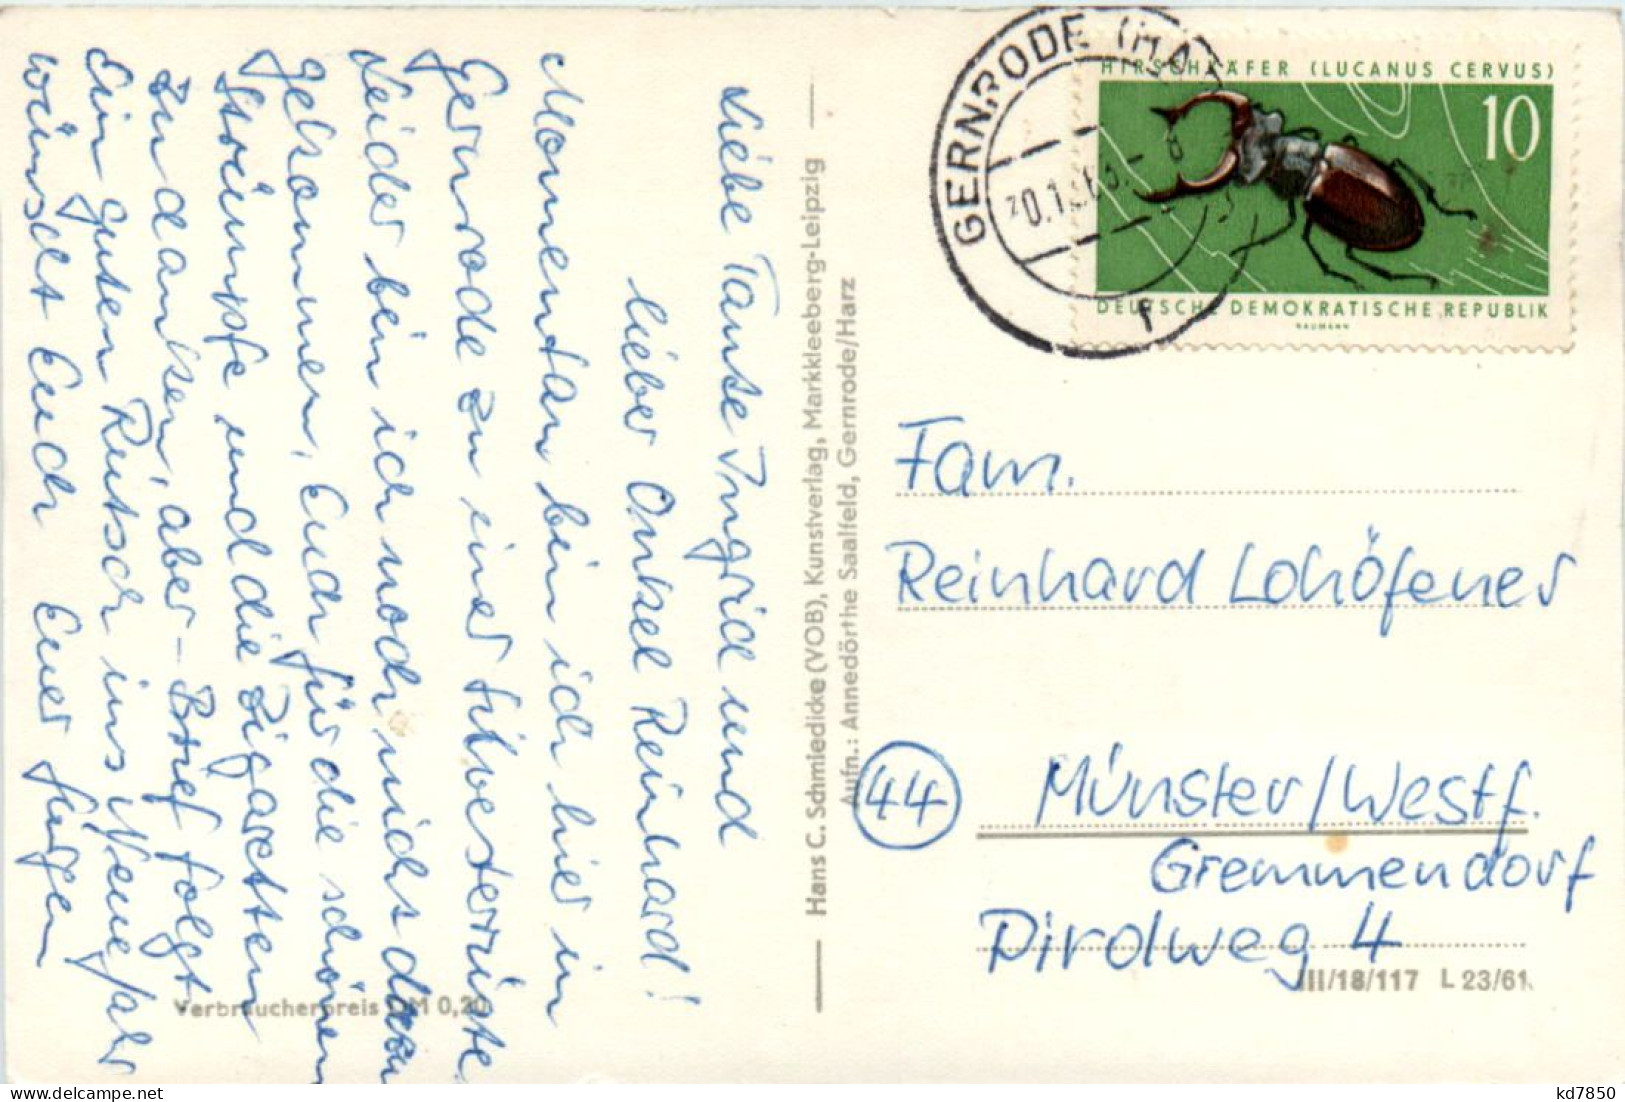 Liebe Tante Ingrid und
lieber Onkel Reinhard!
Momentan bin ich hier in
Gernrode zu einer Silvesterrüste.
Leider bin ich noch nicht dazu
gekommen, Euch für die schönen
Strümpfe und die Zigaretten
zu danken, aber – Brief folgt.
Ein guten Rutsch ins Neue Jahr
wünscht Euch Euer Jürgen
Verbraucherpreis DM 0,20
Hans C. Schmiedicke (VOB), Kunstverlag, Markkleeberg-Leipzig
Aufn.: Annedörthe Saalfeld, Gernrode/Harz
GERNRODE (HARZ)
HIRSCHKÄFER (LUCANUS CERVUS)
10
DEUTSCHE DEMOKRATISCHE REPUBLIK
NAUMANN
Fam.
Reinhard Lohöfener
44 Münster/Westf.
Gremmendorf
Pirolweg 4
III/18/117 L 23/61
kd7850